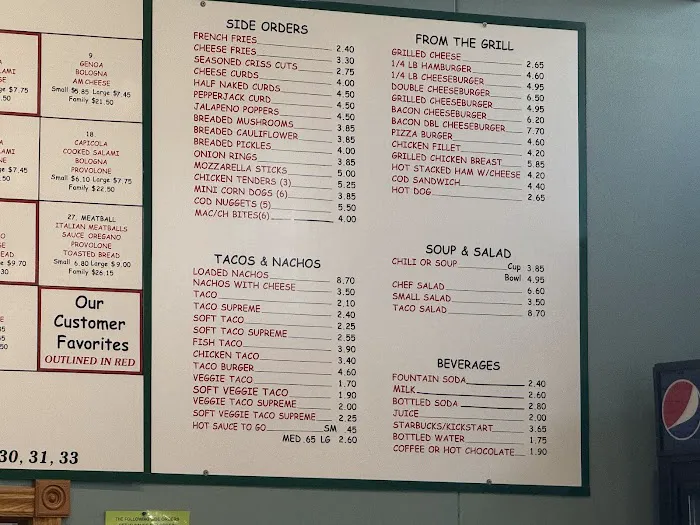 LAMI
SE
ge $7.75
.50
9
GENOA
BOLOGNA
AM.CHEESE
Small $5.85 Large $7.45
Family $21.50
LAMI
NE
ge $7.45
.50
18
CAPICOLA
COOKED SALAMI
BOLOGNA
PROVOLONE
Small $6.10 Large $7.75
Family $22.50
O
SE
EAD
ge $9.70
30
27. MEATBALL
ITALIAN MEATBALLS
SAUCE OREGANO
PROVOLONE
TOASTED BREAD
Small 6.80 Large $9.00
Family $26.15
Our
Customer
Favorites
OUTLINED IN RED
30, 31, 33
SIDE ORDERS
FRENCH FRIES 2.40
CHEESE FRIES 3.30
SEASONED CRISS CUTS 2.75
CHEESE CURDS 4.00
HALF NAKED CURDS 4.50
PEPPERJACK CURD 4.50
JALAPENO POPPERS 4.50
BREADED MUSHROOMS 3.85
BREADED CAULIFLOWER 3.85
BREADED PICKLES 4.00
ONION RINGS 3.85
MOZZARELLA STICKS 5.00
CHICKEN TENDERS (3) 5.25
MINI CORN DOGS (6) 3.85
COD NUGGETS (5) 5.50
MAC/CH BITES(6) 4.00
TACOS & NACHOS
LOADED NACHOS 8.70
NACHOS WITH CHEESE 3.50
TACO 2.10
TACO SUPREME 2.40
SOFT TACO 2.25
SOFT TACO SUPREME 2.55
FISH TACO 3.90
CHICKEN TACO 3.40
TACO BURGER 4.60
VEGGIE TACO 1.70
SOFT VEGGIE TACO 1.90
VEGGIE TACO SUPREME 2.00
SOFT VEGGIE TACO SUPREME 2.25
HOT SAUCE TO GO SM .45
MED .65 LG 2.60
FROM THE GRILL
GRILLED CHEESE 2.65
1/4 LB HAMBURGER 4.60
1/4 LB CHEESEBURGER 4.95
DOUBLE CHEESEBURGER 6.50
GRILLED CHEESEBURGER 4.95
BACON CHEESEBURGER 6.20
BACON DBL CHEESEBURGER 7.70
PIZZA BURGER 4.60
CHICKEN FILLET 4.20
GRILLED CHICKEN BREAST 5.85
HOT STACKED HAM W/CHEESE 4.20
COD SANDWICH 4.40
HOT DOG 2.65
SOUP & SALAD
CHILI OR SOUP Cup 3.85
Bowl 4.95
CHEF SALAD 6.60
SMALL SALAD 3.50
TACO SALAD 8.70
BEVERAGES
FOUNTAIN SODA 2.40
MILK 2.60
BOTTLED SODA 2.80
JUICE 2.00
STARBUCKS/KICKSTART 3.65
BOTTLED WATER 1.75
COFFEE OR HOT CHOCOLATE 1.90